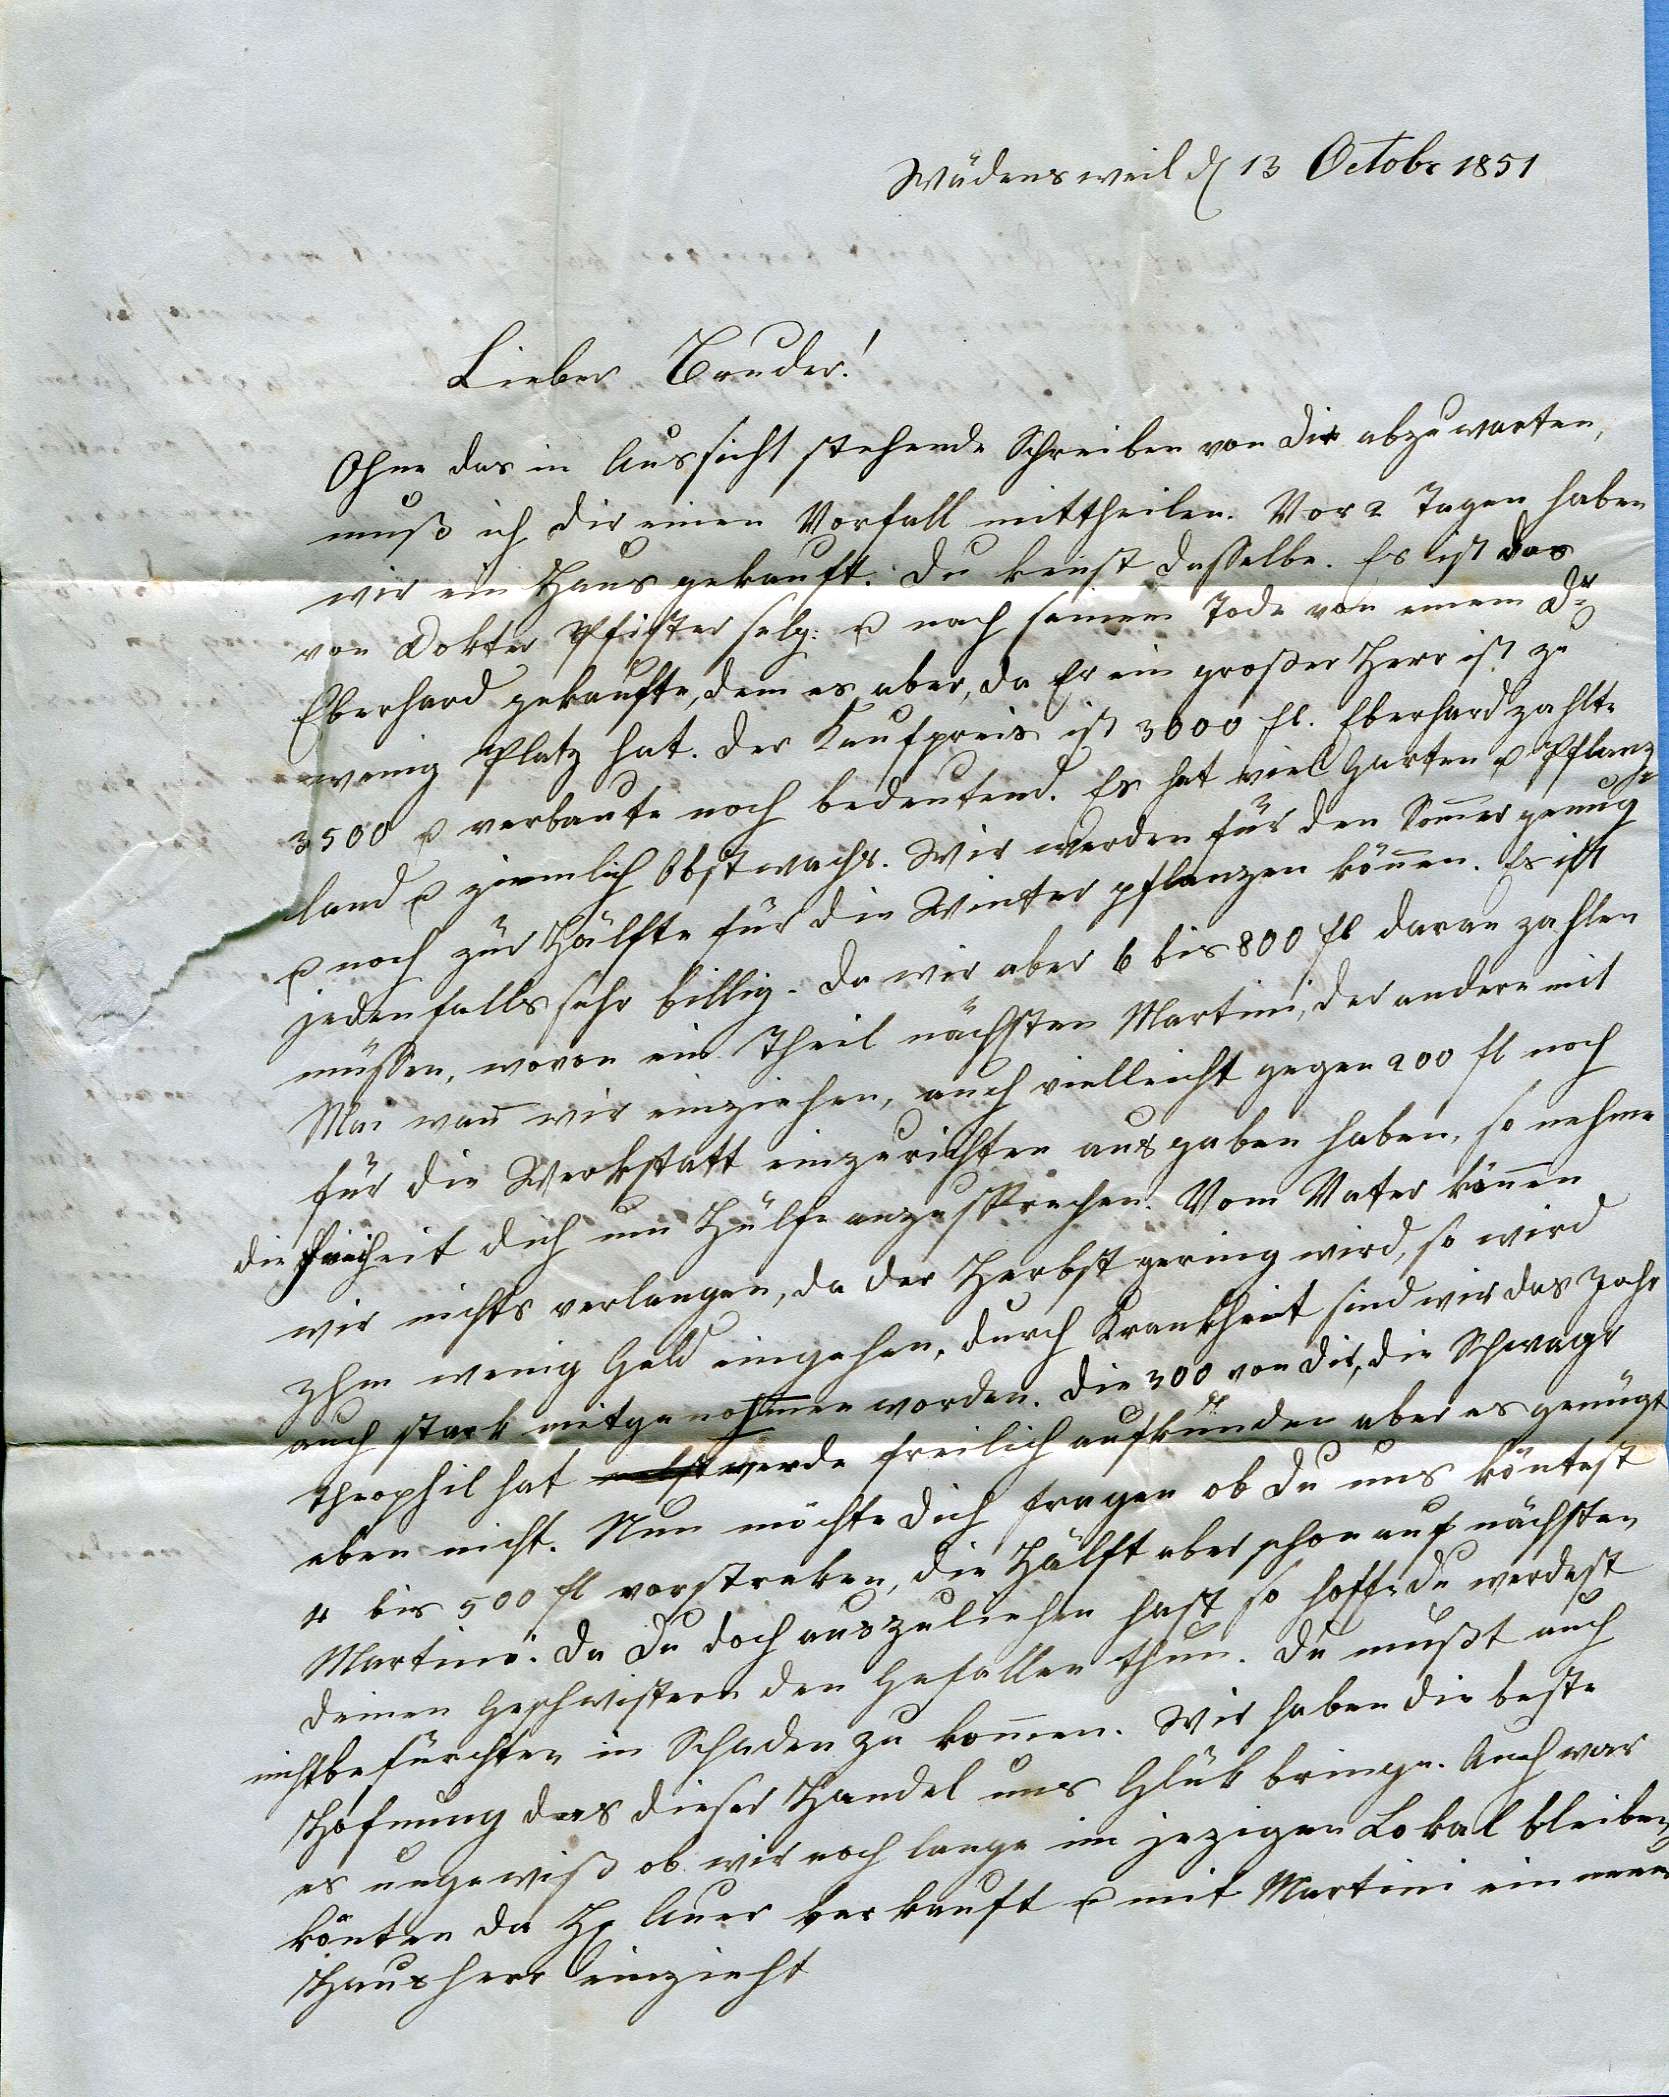 Wädensweil d 13 Octobr 1851
Lieber Bruder!
Ohne das in Aussicht stehende Schreiben von Dir abzuwarten,
muß ich Dir einen Vorfall mittheilen. Vor 2 Tagen haben
wir ein Haus gekauft. Du kenst dasselbe. Es ist das
von Dokter Pfister selg: u nach seinem Tode von einem Dr
Eberhard gekaufte, dem es aber, da Er ein großer Herr ist zu
wenig Platz hat. Der Kaufpreis ist 3000 fl. Eberhard zahlte
3500 u verbaute noch bedeutend. Es hat viel Garten u Pflanz-
land u ziemlich Obstwachs. Wir werden für den Som̄er genug
u noch zur Hälfte für die Winter pflanzen kön̄en. Es ist
jedenfalls sehr billig. Da wir aber 6 bis 800 fl daran zahlen
müssen, wovon ein Theil nächsten Martini, der andere mit
Mai wan̄ wir einziehen, auch vielleicht gegen 200 fl noch
für die Werkstatt einzurichten ausgaben haben, so nehme
die Freiheit dich um Hülfe anzusprechen. Vom Vater kön̄en
wir nichts verlangen, da der Herbst gering wird, so wird
Ihm wenig Geld eingehen, durch Krankheit sind wir das Jahr
auch stark mitgenohmen worden. Die 300 von dir, die Schwagr
Theophil hat werde freilich aufkünden aber es genügt
eben nicht. Nun möchte Dich fragen ob Du uns köntest
4 bis 500 fl vorstreken, die Hälft aber schon auf nächsten
Martini. Da Du doch auszuliehen hast so hoffe Du werdest
deinen Geschwistern den Gefallen thun. Du mußt auch
nicht befürchten in Schaden zu kom̄en. Wir haben die beste
Hofnung das dieser Handel uns Glük bringe. Auch war
es ungewiß ob wir noch lange im jezigen Lokal bleiben
könten da Hr Auer verkauft u mit Martini ein neuer
Hausherr einzieht